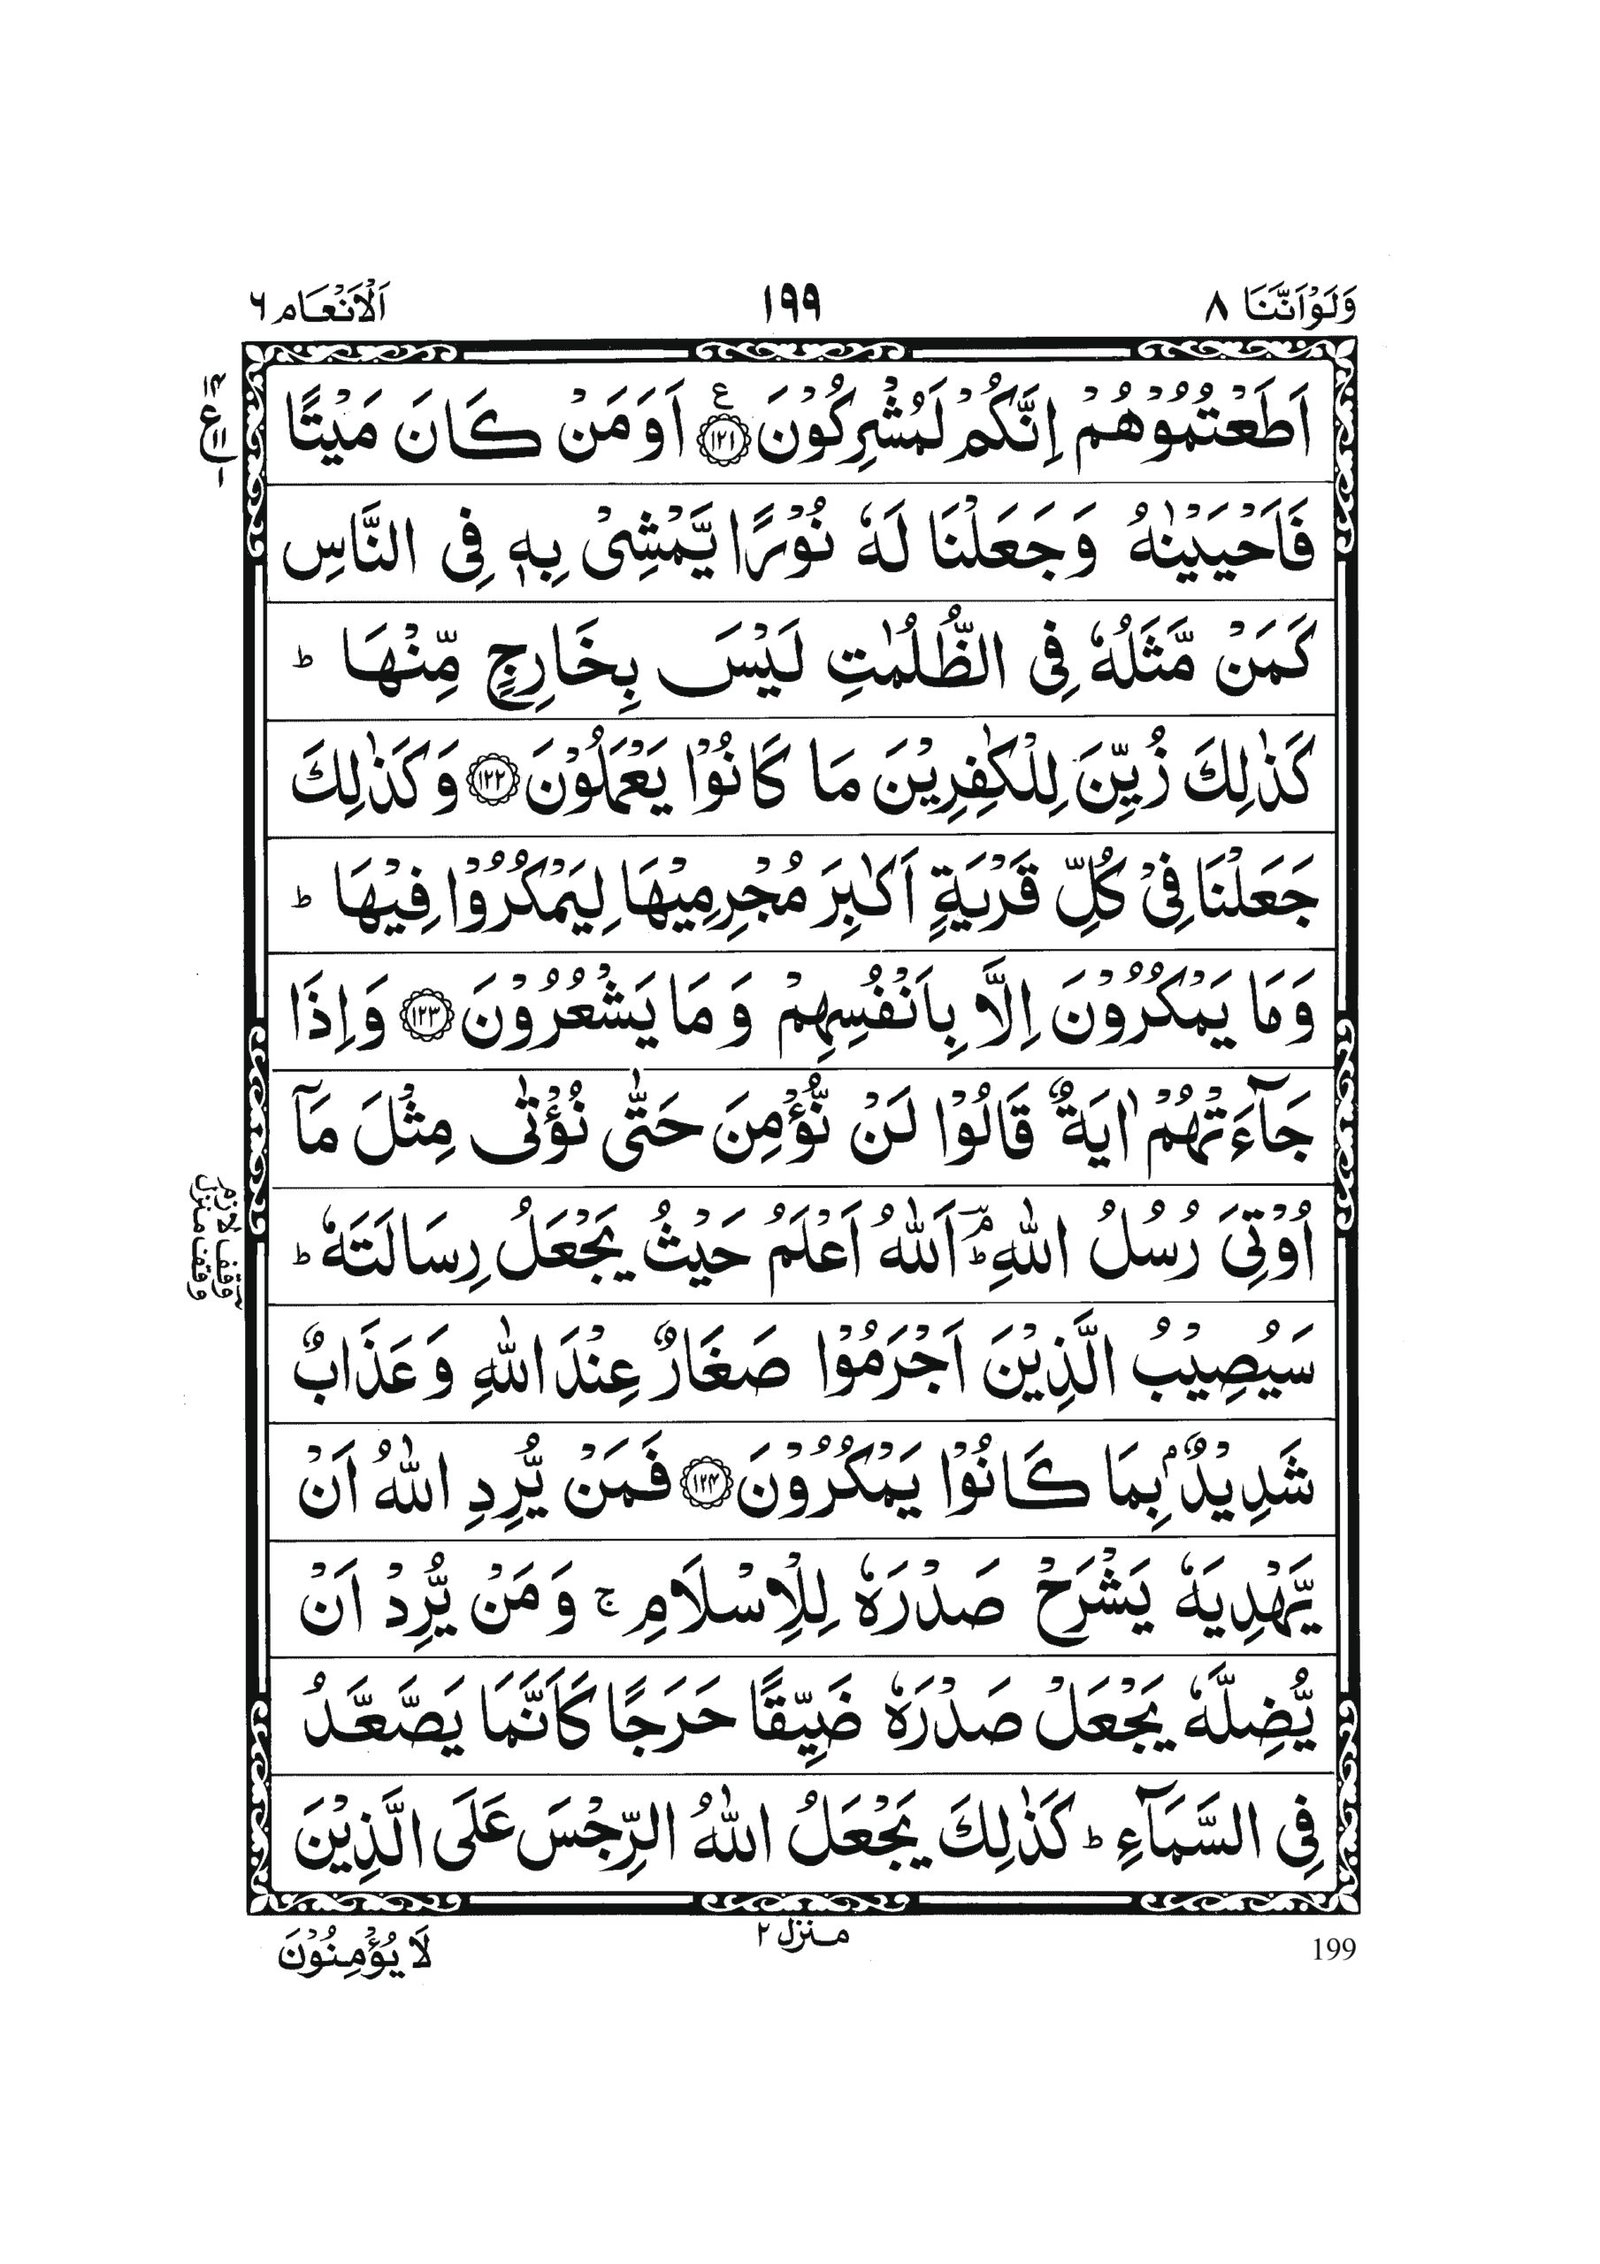 وَلَوْ اَنَّنَا ٨
١٩٩
اَلْاَنْعَام ٦
اَطَعْتُمُوْهُمْ اِنَّكُمْ لَمُشْرِكُوْنَ ۧ﴿١٢١﴾ اَوَمَنْ كَانَ مَيْتًا
فَاَحْيَيْنٰهُ وَجَعَلْنَا لَهٗ نُوْرًا يَّمْشِىْ بِهٖ فِى النَّاسِ
كَمَنْ مَّثَلُهٗ فِى الظُّلُمٰتِ لَيْسَ بِخَارِجٍ مِّنْهَا ؕ
كَذٰلِكَ زُيِّنَ لِلْكٰفِرِيْنَ مَا كَانُوْا يَعْمَلُوْنَ ﴿١٢٢﴾ وَكَذٰلِكَ
جَعَلْنَا فِىْ كُلِّ قَرْيَةٍ اَكٰبِرَ مُجْرِمِيْهَا لِيَمْكُرُوْا فِيْهَا ؕ
وَمَا يَمْكُرُوْنَ اِلَّا بِاَنْفُسِهِمْ وَمَا يَشْعُرُوْنَ ﴿١٢٣﴾ وَاِذَا
جَآءَتْهُمْ اٰيَةٌ قَالُوْا لَنْ نُّؤْمِنَ حَتّٰى نُؤْتٰى مِثْلَ مَآ
اُوْتِىَ رُسُلُ اللّٰهِ ؕۘ اَللّٰهُ اَعْلَمُ حَيْثُ يَجْعَلُ رِسَالَتَهٗ ؕ
سَيُصِيْبُ الَّذِيْنَ اَجْرَمُوْا صَغَارٌ عِنْدَ اللّٰهِ وَعَذَابٌ
شَدِيْدٌۢ بِمَا كَانُوْا يَمْكُرُوْنَ ﴿١٢٤﴾ فَمَنْ يُّرِدِ اللّٰهُ اَنْ
يَّهْدِيَهٗ يَشْرَحْ صَدْرَهٗ لِلْاِسْلَامِ ۚ وَمَنْ يُّرِدْ اَنْ
يُّضِلَّهٗ يَجْعَلْ صَدْرَهٗ ضَيِّقًا حَرَجًا كَاَنَّمَا يَصَّعَّدُ
فِى السَّمَآءِ ؕ كَذٰلِكَ يَجْعَلُ اللّٰهُ الرِّجْسَ عَلَى الَّذِيْنَ
ع
١١
١
وقف لازم
وقف منزل
199
منزل ٢
لَا يُؤْمِنُوْنَ